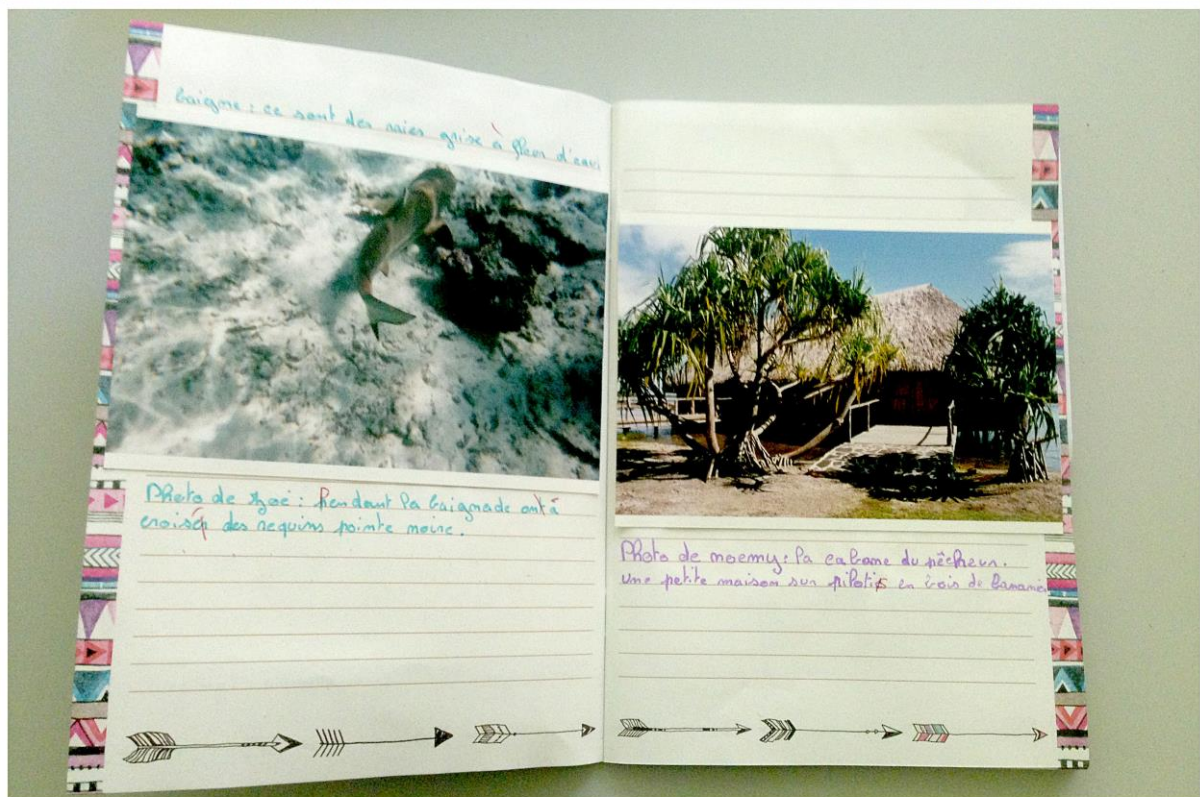 baigne : ce sont des raies grise à fleur d'eau.
Photo de Zoé : Pendant la baignade ont à
croiséq des requins pointe noire.
Photo de noemy : la cabane du pêcheur.
Une petite maison sur pilotis en bois de bananier